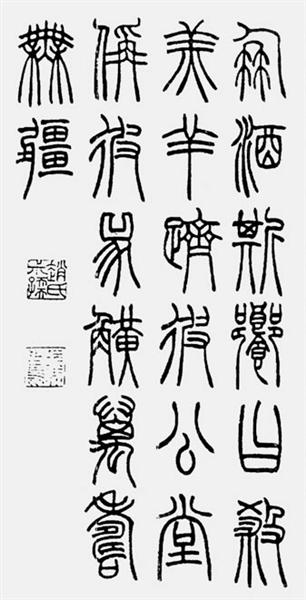 朋酒斯饗曰殺
羔羊躋彼公堂
偁彼兕觵萬壽
無疆